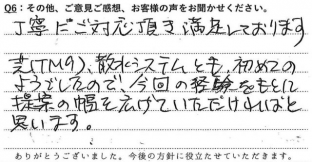 Q6：その他、ご意見ご感想、お客様の声をお聞かせください。
丁寧にご対応頂き満足しております
芝(TM9)、散水システムとも、初めての
ようでしたので、今回の経験をもとに
提案の幅を広げていただければと
思います。
ありがとうございました。今後の方針に役立たせていただきます。